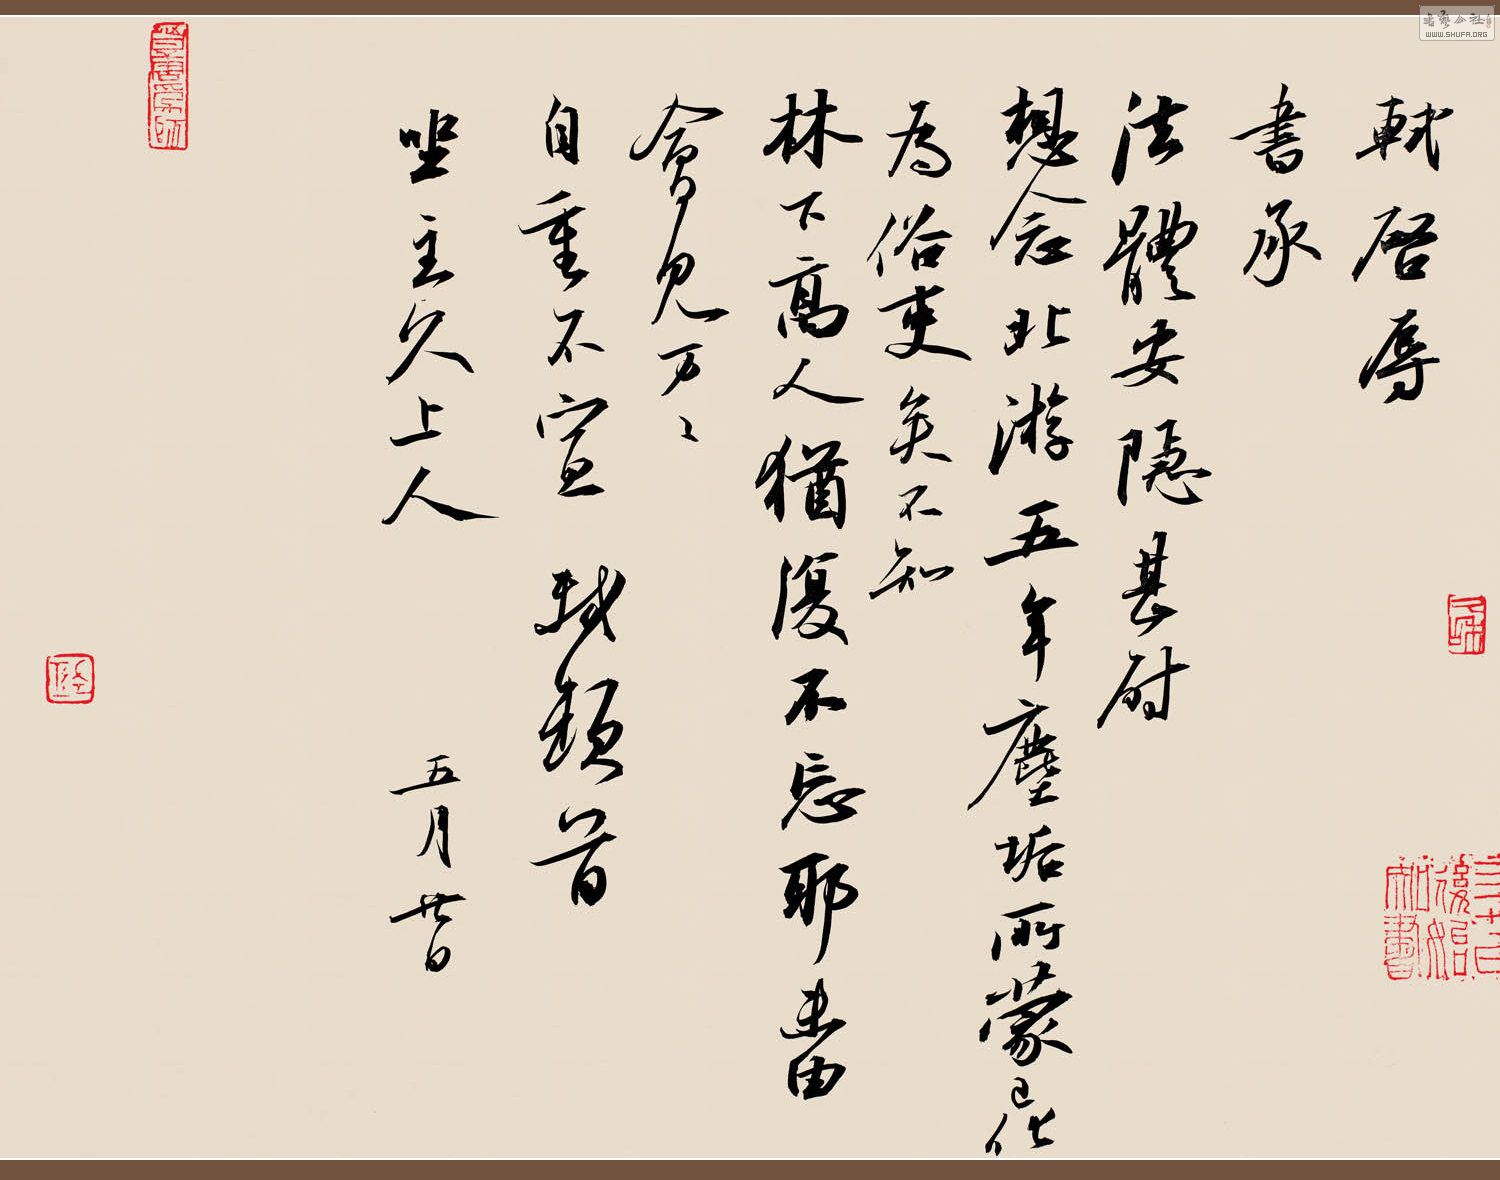 軾啓辱
書承
法體安隱甚慰
想念北游五年塵垢所蒙已化
為俗吏矣不知
林下高人猶復不忘耶未由
會見万万
自重不宣 軾頓首
坐主久上人 五月廿日
WWW.SHUFA.ORG